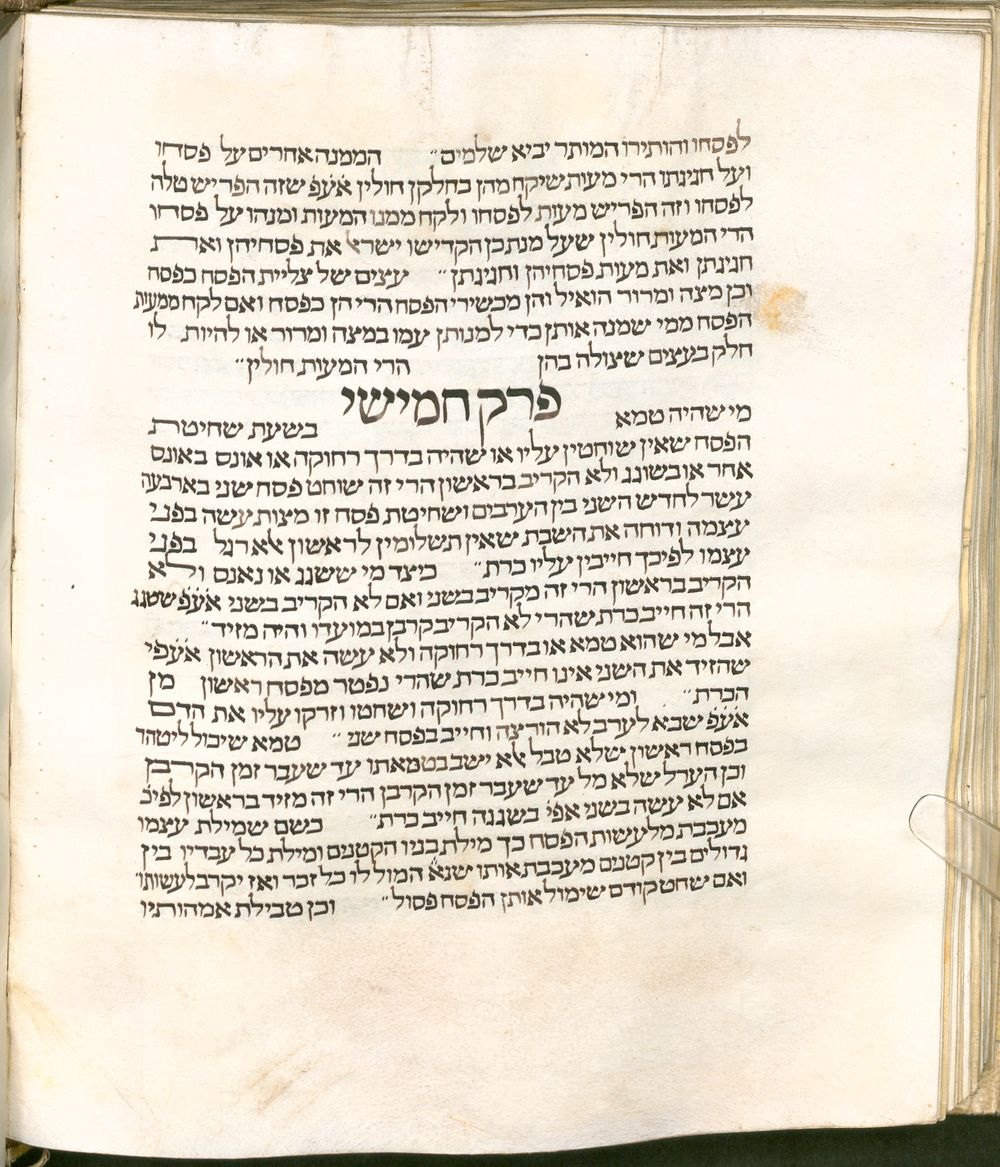 לפסחו והותירו המותר יביא שלמים״ הממנה אחרים על פסחו
ועל חגיגתו הרי מעות שיקח מהן בחלקן חולין אע֗פ֗ שזה הפריש טלה
לפסחו וזה הפריש מעות לפסחו ולקח ממנו המעות ומנהו על פסחו
הרי המעות חולין שעל מנת כן הקדישו ישראל את פסחיהן ואת
חגיגתן ואת מעות פסחיהן וחגיגתן״ עצים של צליית הפסח כפסח
וכן מצה ומרור הואיל והן מכשירי הפסח הרי הן כפסח ואם לקח ממעות
הפסח ממי שמנה אותן כדי למנותן עמו במצה ומרור או להיות לו
חלק בעצים שצולה בהן הרי המעות חולין״
פרק חמישי
מי שהיה טמא בשעת שחיטת
הפסח שאין שוחטין עליו או שהיה בדרך רחוקה או אונס באונס
אחר או בשוגג ולא הקריב בראשון הרי זה שוחט פסח שני בארבעה
עשר לחדש השני בין הערבים ושחיטת פסח זו מצות עשה בפני
עצמה ודוחה את השבת שאין תשלומין לראשון אלא רגל בפני
עצמו לפיכך חייבין עליו כרת״ כיצד מי ששגג או נאנס ולא
הקריב בראשון הרי זה מקריב בשני ואם לא הקריב בשני אע֗פ֗ ששגג
הרי זה חייב כרת שהרי לא הקריב קרבן במועדו והיה מזיד״
אבל מי שהוא טמא או בדרך רחוקה ולא עשה את הראשון אע֗פ֗י
שהזיד את השני אינו חייב כרת שהרי נפטר מפסח ראשון מן
הכרת״ ומי שהיה בדרך רחוקה ושחטו וזרקו עליו את הדם
אע֗פ֗ שבא לערב לא הורצה וחייב בפסח שני״ טמא שיכול ליטהר
בפסח ראשון שלא טבל אלא ישב בטמאתו עד שעבר זמן הקרבן
וכן הערל שלא מל עד שעבר זמן הקרבן הרי זה מזיד בראשון לפיכ֗
אם לא עשה בשני אפי֗ בשגגה חייב כרת״ כשם שמילת עצמו
מעכבת מלעשות הפסח כך מילת בניו הקטנים ומילת כל עבדיו בין
גדולים בין קטנים מעכבת אותו שנא֗ המול לו כל זכר ואז יקרב לעשותו״
ואם שחט קודם שימול אותן הפסח פסול״ וכן טבילת אמהותיו